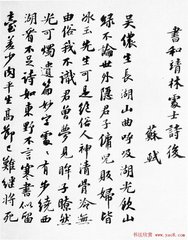 書和靖林處士詩後
蘇軾
吳儂生長湖山曲呼吸湖光飲山
綠不論世外隱君子傭兒販婦皆
冰玉先生可是絕俗人神清骨冷無
由俗我不識君曾夢見眸子瞭然
光可燭遺篇妙字處處有步繞西
湖看不足詩如東野不言寒書似留
臺差少肉平生高節已難繼將死
书法欣赏
www.yac8.com